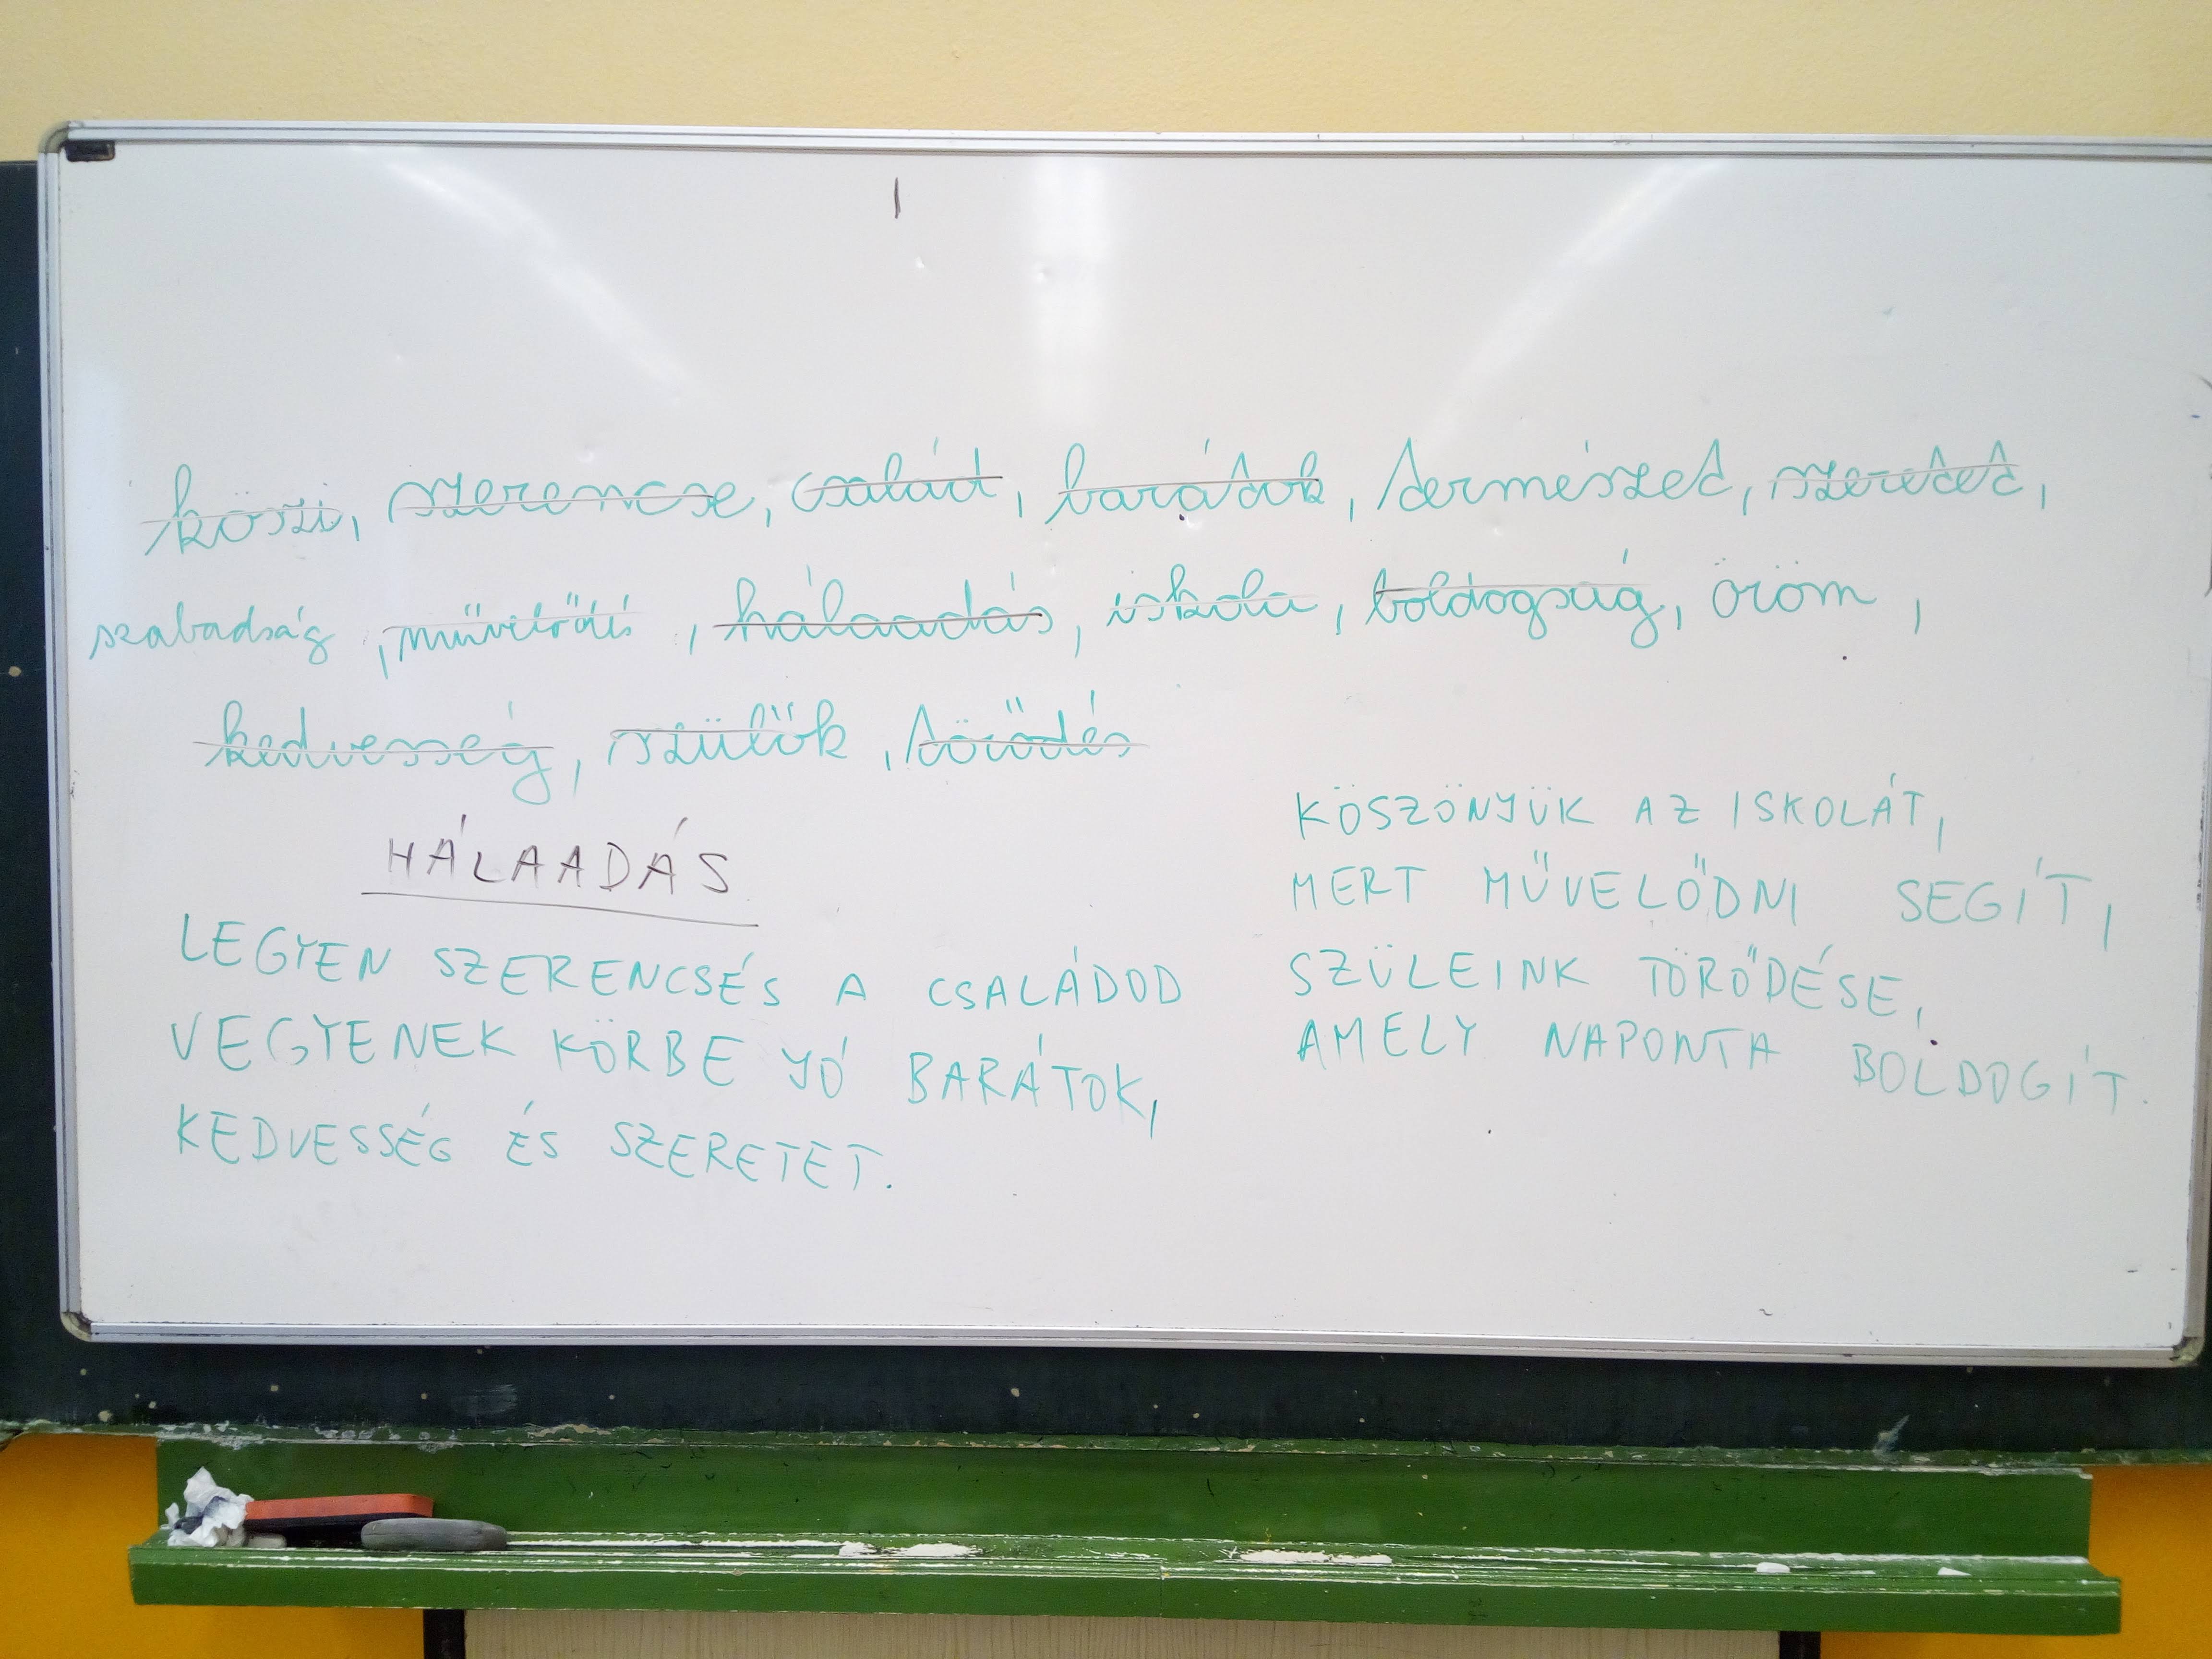 köszi, szerencse, család, barátok, természet, szeretet,
szabadság, művelődés, hálaadás, iskola, boldogság, öröm,
kedvesség, szülők, törődés
HÁLAADÁS
LEGYEN SZERENCSÉS A CSALÁDOD
VEGYENEK KÖRBE JÓ BARÁTOK,
KEDVESSÉG ÉS SZERETET.
KÖSZÖNJÜK AZ ISKOLÁT,
MERT MŰVELŐDNI SEGÍT,
SZÜLEINK TÖRŐDÉSE,
AMELY NAPONTA BOLDOGÍT.